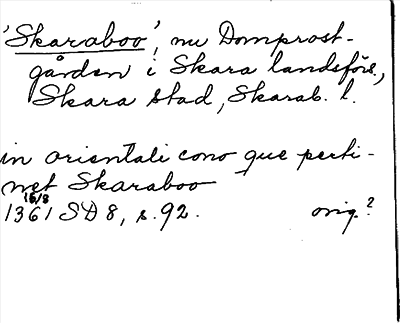 'Skaraboo', nu Domprost-
gården i Skara landsförs.,
Skara stad, Skarab. l.
in orientali cono que perti-
net Skaraboo
16/8
1361 SD 8, s. 92. orig.?